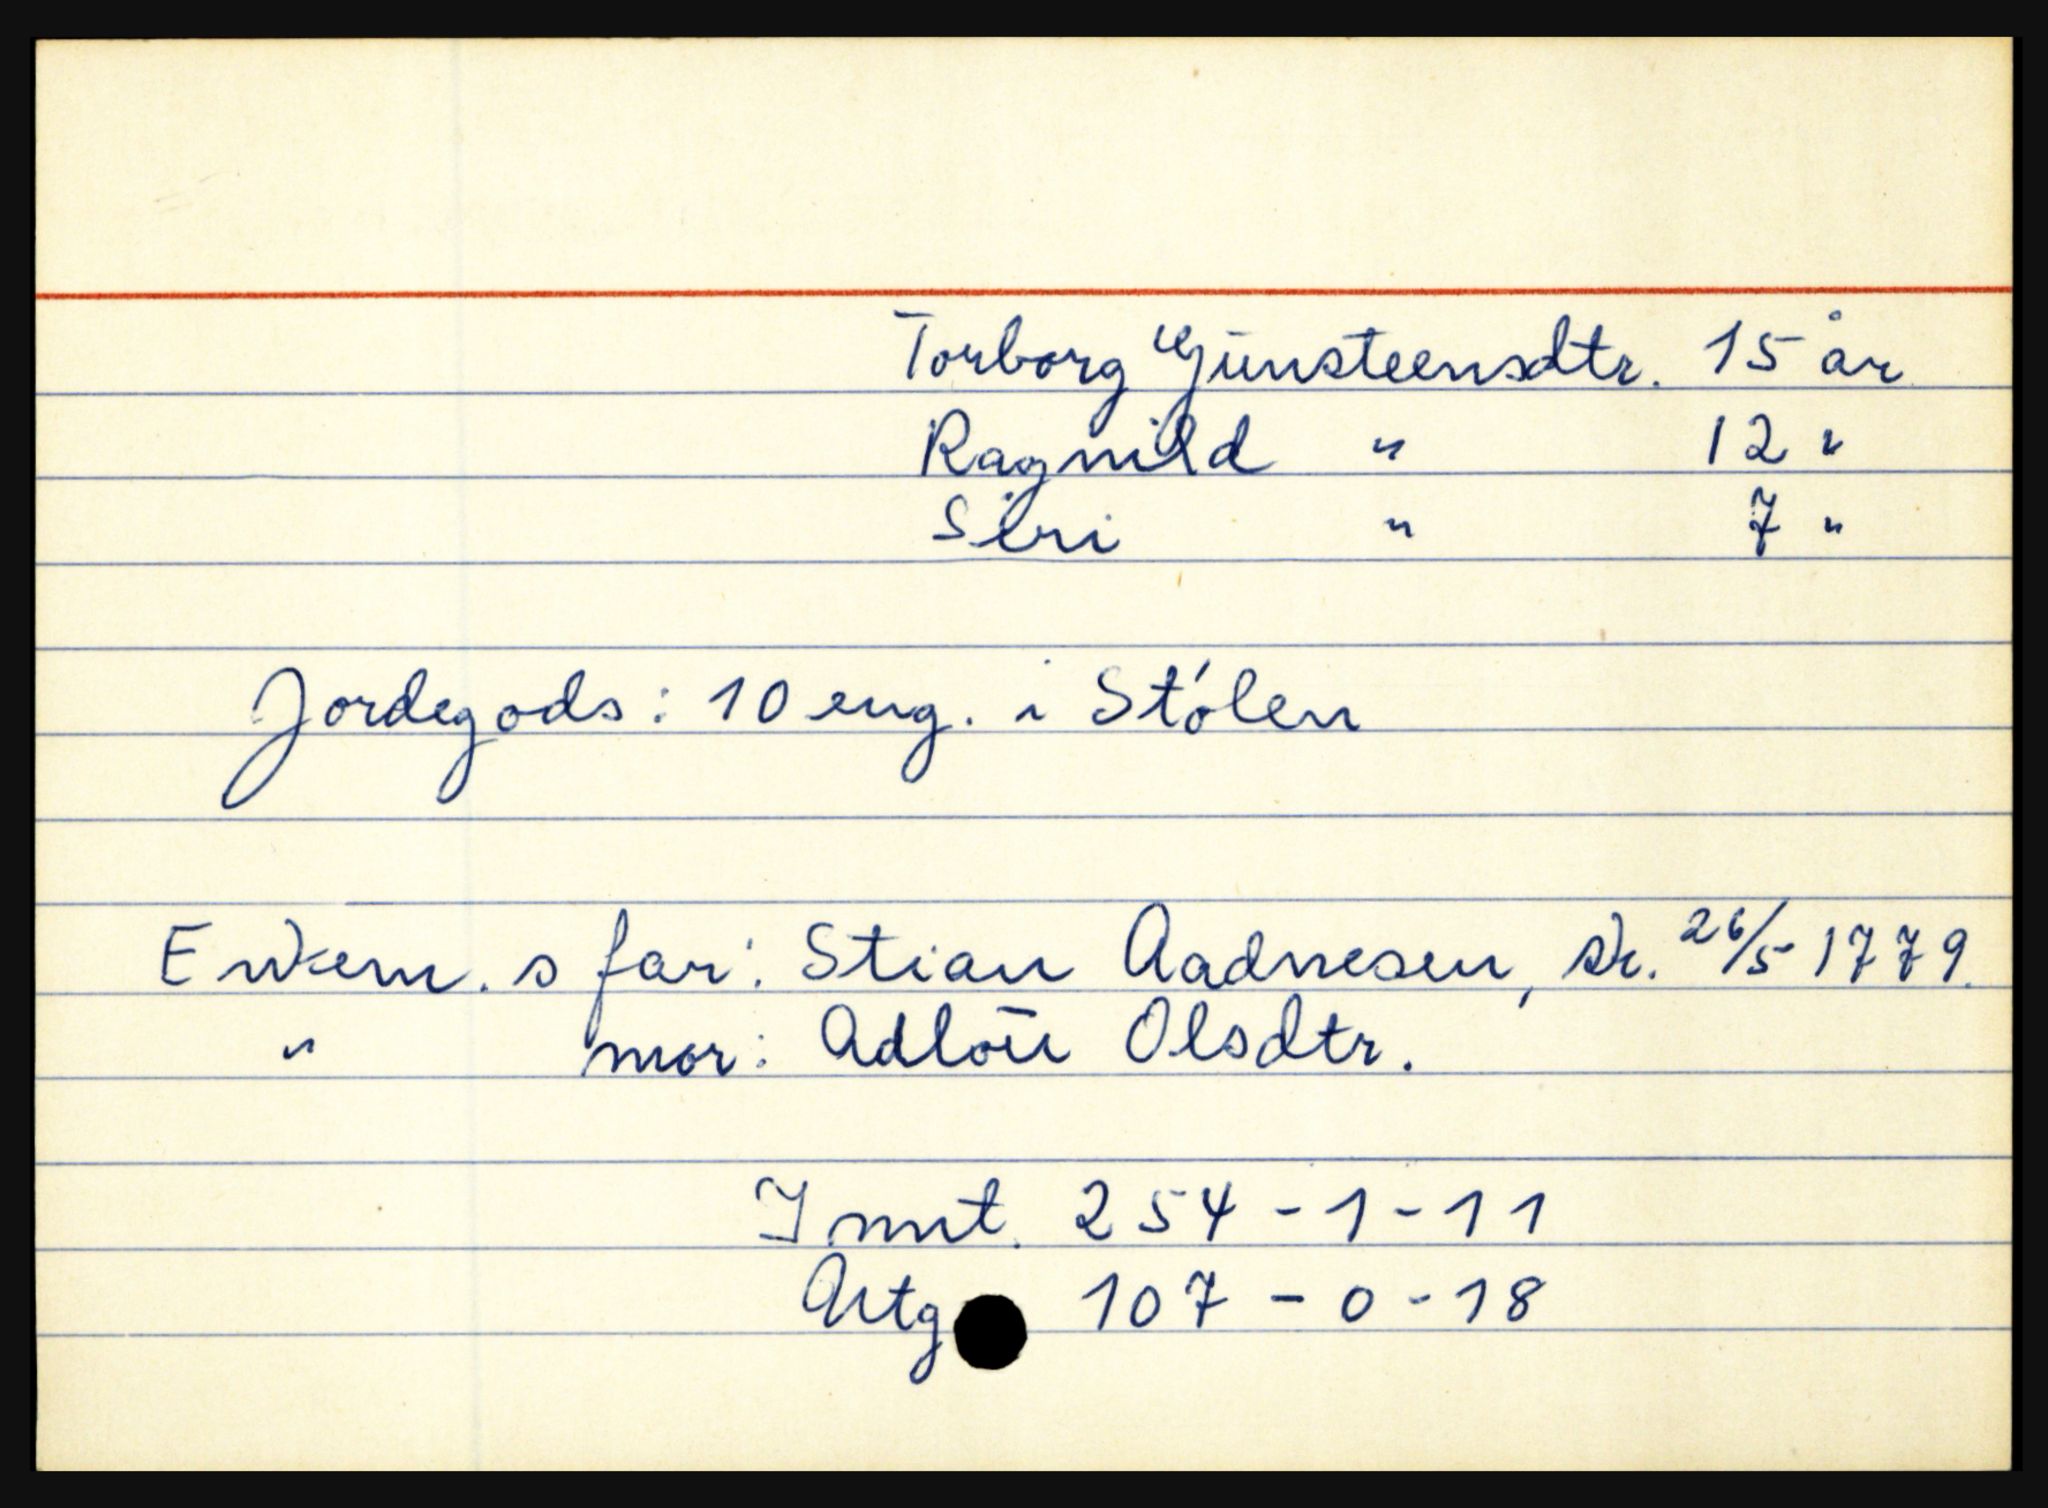 Torborg Gunsteensdtr. 15 år
Ragnild " 12 "
Siri " 7 "
Jordegods: 10 eng. i Stólen
Enkem.s far: Stian Aadnesen, sk. 26/5 1779.
" mor: Adloŭ Olsdtr.
I mnt. 254-1-11
Utg 107-0-18